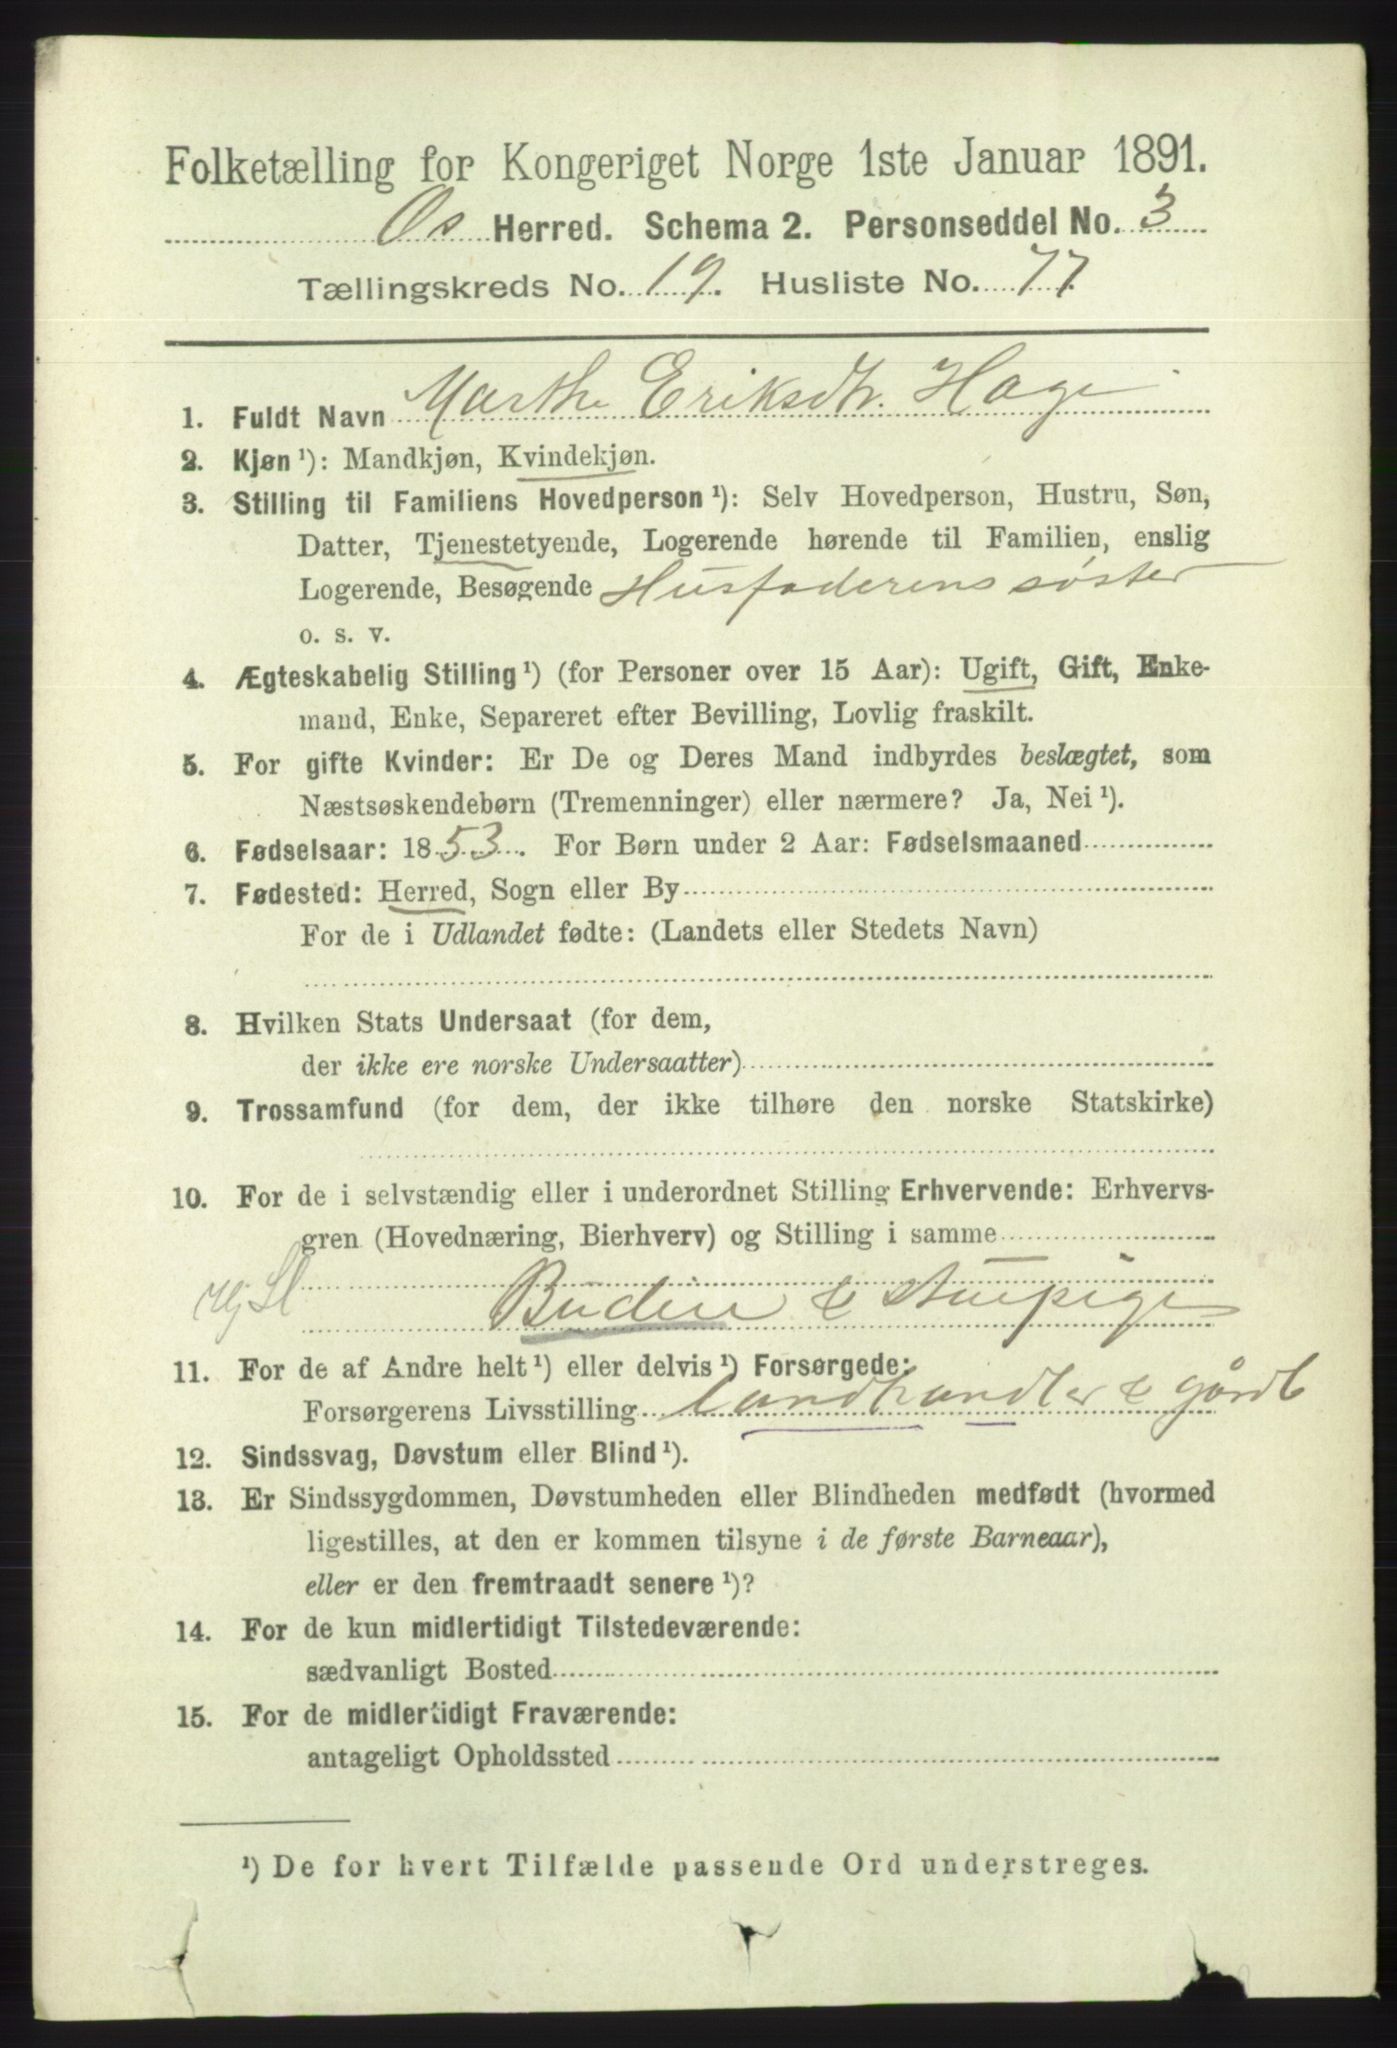 Folketælling for Kongeriget Norge 1ste Januar 1891.
Os Herred. Schema 2. Personseddel No. 3
Tællingskreds No. 19. Husliste No. 77
1. Fuldt Navn Marthe Eriksdtr. Hage
2. Kjøn¹): Mandkjøn, Kvindekjøn.
3. Stilling til Familiens Hovedperson¹): Selv Hovedperson, Hustru, Søn,
Datter, Tjenestetyende, Logerende hørende til Familien, enslig
Logerende, Besøgende Husfaderens søster
o. s. v.
4. Ægteskabelig Stilling¹) (for Personer over 15 Aar): Ugift, Gift, Enke-
mand, Enke, Separeret efter Bevilling, Lovlig fraskilt.
5. For gifte Kvinder: Er De og Deres Mand indbyrdes beslægtet, som
Næstsøskendebørn (Tremenninger) eller nærmere? Ja, Nei¹).
6. Fødselsaar: 1853. For Børn under 2 Aar: Fødselsmaaned
7. Fødested: Herred, Sogn eller By
For de i Udlandet fødte: (Landets eller Stedets Navn)
8. Hvilken Stats Undersaat (for dem,
der ikke ere norske Undersaatter)
9. Trossamfund (for dem, der ikke tilhøre den norske Statskirke)
10. For de i selvstændig eller i underordnet Stilling Erhvervende: Erhvervs-
gren (Hovednæring, Bierhverv) og Stilling i samme
Budeie & Stuepige
11. For de af Andre helt¹) eller delvis¹) Forsørgede:
Forsørgerens Livsstilling Landhandler & gårdb
12. Sindssvag, Døvstum eller Blind¹).
13. Er Sindssygdommen, Døvstumheden eller Blindheden medfødt (hvormed
ligestilles, at den er kommen tilsyne i de første Barneaar),
eller er den fremtraadt senere¹)?
14. For de kun midlertidigt Tilstedeværende:
sædvanligt Bosted
15. For de midlertidigt Fraværende:
antageligt Opholdssted
¹) De for hvert Tilfælde passende Ord understreges.